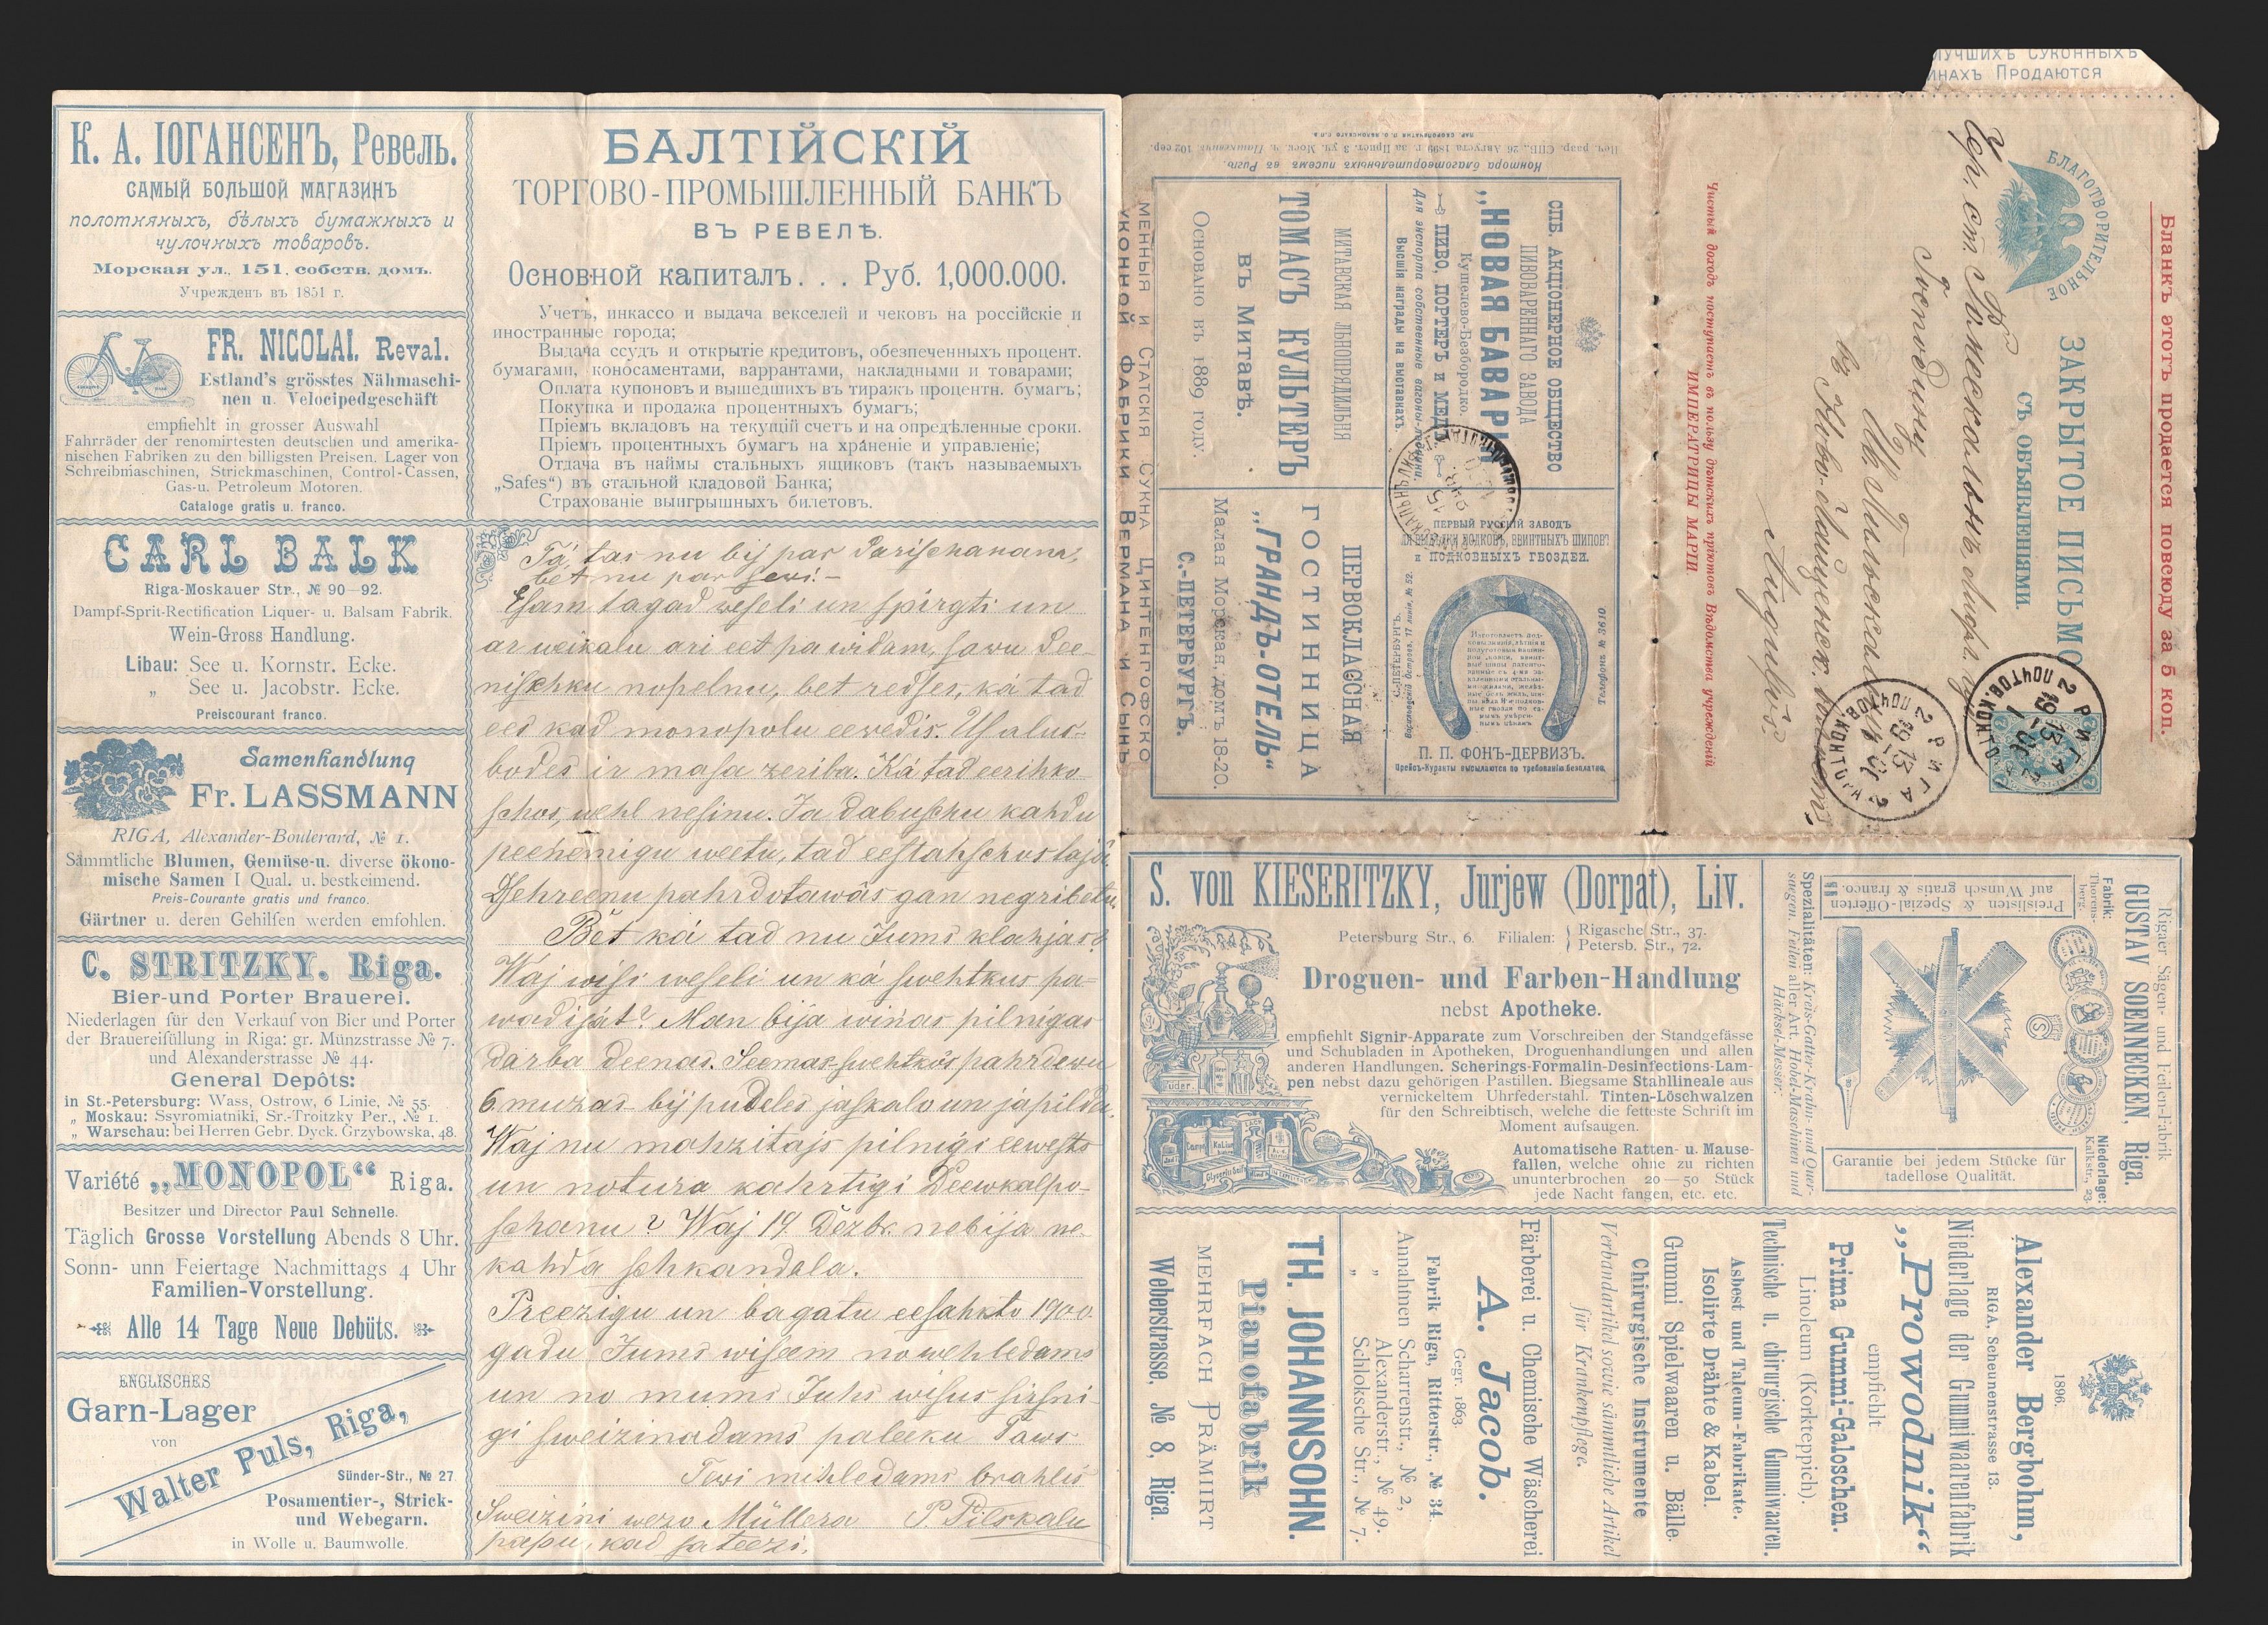 К. А. ІОГАНСЕНЪ, Ревель.
САМЫЙ БОЛЬШОЙ МАГАЗИНЪ
полотняныхъ, бѣлыхъ бумажныхъ и
чулочныхъ товаровъ.
Морская ул., 151, собств. домъ.
Учрежденъ въ 1851 г.
FR. NICOLAI. Reval.
Estland's grösstes Nähmaschi-
nen u. Velocipedgeschäft
empfiehlt in grosser Auswahl
Fahrräder der renomirtesten deutschen und amerika-
nischen Fabriken zu den billigsten Preisen. Lager von
Schreibmaschinen, Strickmaschinen, Control-Cassen,
Gas-u. Petroleum Motoren.
Cataloge gratis u. franco.
CARL BALK
Riga-Moskauer Str., № 90—92.
Dampf-Sprit-Rectification Liquer- u. Balsam Fabrik.
Wein-Gross Handlung.
Libau: See u. Kornstr. Ecke.
„ See u. Jacobstr. Ecke.
Preiscourant franco.
Samenhandlung
Fr. LASSMANN
RIGA, Alexander-Boulerard, № 1.
Sämmtliche Blumen, Gemüse-u. diverse ökono-
mische Samen I Qual. u. bestkeimend.
Preis-Courante gratis und franco.
Gärtner u. deren Gehilfen werden emfohlen.
C. STRITZKY. Riga.
Bier-und Porter Brauerei.
Niederlagen für den Verkauf von Bier und Porter
der Brauereifüllung in Riga: gr. Münzstrasse № 7.
und Alexanderstrasse № 44.
General Depôts:
in St.-Petersburg: Wass, Ostrow, 6 Linie, № 55.
„ Moskau: Ssyromiatniki, Sr.-Troitzky Per., № 1.
„ Warschau: bei Herren Gebr. Dyck. Grzybowska, 48.
Variété „MONOPOL“ Riga.
Besitzer und Director Paul Schnelle.
Täglich Grosse Vorstellung Abends 8 Uhr.
Sonn- unn Feiertage Nachmittags 4 Uhr
Familien-Vorstellung.
Alle 14 Tage Neue Debüts.
ENGLISCHES
Garn-Lager
von
Walter Puls, Riga,
Sünder-Str., № 27
Posamentier-, Strick-
und Webegarn.
in Wolle u. Baumwolle.
БАЛТІЙСКІЙ
ТОРГОВО-ПРОМЫШЛЕННЫЙ БАНКЪ
ВЪ РЕВЕЛѢ.
Основной капиталъ. . . Руб. 1,000.000.
Учетъ, инкассо и выдача векселей и чековъ на россійскіе и
иностранные города;
Выдача ссудъ и открытіе кредитовъ, обезпеченныхъ процент.
бумагами, коносаментами, варрантами, накладными и товарами;
Оплата купоновъ и вышедшихъ въ тиражъ процентн. бумагъ;
Покупка и продажа процентныхъ бумагъ;
Пріемъ вкладовъ на текущій счетъ и на опредѣленные сроки.
Пріемъ процентныхъ бумагъ на храненіе и управленіе;
Отдача въ наймы стальныхъ ящиковъ (такъ называемыхъ
„Safes“) въ стальной кладовой Банка;
Страхованіе выигрышныхъ билетовъ.
Tá, tas nu bij par Parischanam,
bet nu par sewi! —
Esam tagad weseli un spirgti un
ar weikalu ari eet pa widam, sawu Pee-
nischku nopelnu, bet redses, ká tad
ees kad monopolu eewedis. Us alus-
bodes ir masa zeriba. Ká tad eerihko
schos, wehl nesinu. Ja dabuschu kahdu
peenemigu weetu, tad eestahschos tajâ.
Dsehreenu pahrdotawâs gan negribetu.
Bet ká tad nu Jums klahjas?
Waj wisi weseli un ká swehtkus pa-
wadijat? Man bija winas pilnigas
darba deenas. Seemas-swehtkôs pahrdewu
6 muzas bij pudeles jaskalo un japilda.
Waj nu mahzitajs pilnigi eewests
un notura kahrtigi Deewkalpo-
schanu? Waj 19. Dezbr. nebija ne-
kahda schkandala.
Preezigu un bagatu eesahkto 1900.
gadu Jums wiseem nowehledams
un no mums Juhs wisus sirsni-
gi sweizinadams paleeku Taws
Tewi mihledams brahlis
Sweizini wezo Müllera P. Pilskaln
papu, kad sateezi.
МЕННЫЯ И СТАТСКІЯ СУКНА ЦИНТЕНГОФСКО
УКОННОЙ ФАБРИКИ ВЕРМАНА И СЫНЪ
Контора благотворительныхъ писемъ въ Ригѣ.
СПБ. АКЦІОНЕРНОЕ ОБЩЕСТВО
ПИВОВАРЕННАГО ЗАВОДА
„НОВАЯ БАВАРІЯ“
Кушелево-Безбородко.
ПИВО, ПОРТЕРЪ и МЕДЪ
Для экспорта собственные вагоны-ледники.
Высшія награды на выставкахъ.
МИТАВСКАЯ ЛЬНОПРЯДИЛЬНЯ
ТОМАСЪ КУЛЬТЕРЪ
въ Митавѣ.
Основано въ 1889 году.
Телефонъ № 3610
ПЕРВЫЙ РУССКІЙ ЗАВОДЪ
ПОДКОВНЫХЪ ГВОЗДЕЙ.
С.-ПЕТЕРБУРГЪ.
П. П. ФОНЪ-ДЕРВИЗЪ.
Прейсъ-Куранты высылаются по требованію безплатно.
ПЕРВОКЛАССНАЯ
ГОСТИННИЦА
„ГРАНДЪ-ОТЕЛЬ“
Малая Морская, домъ 18-20.
С.-ПЕТЕРБУРГЪ.
ЛУЧШИХЪ СУКОННЫХЪ
ИНАХЪ ПРОДАЮТСЯ
Бланкъ этотъ продается повсюду за 5 коп.
БЛАГОТВОРИТЕЛЬНОЕ
ЗАКРЫТОЕ ПИСЬМО
СЪ ОБЪЯВЛЕНІЯМИ.
Чистый доходъ поступаетъ въ пользу дѣтскихъ пріютовъ Вѣдомства учрежденій
ИМПЕРАТРИЦЫ МАРІИ.
Чрезъ ст. Ромескальнъ
Господину
М. Пильскалнъ
въ Ново-Лайценск.
РИГА
2 ПОЧТОВ. КОНТОРА
РИГА
2 ПОЧТОВ. КОНТОРА
S. von KIESERITZKY, Jurjew (Dorpat), Liv.
Petersburg Str., 6. Filialen: Rigasche Str., 37.
Petersb. Str., 72.
Droguen- und Farben-Handlung
nebst Apotheke.
empfiehlt Signir-Apparate zum Vorschreiben der Standgefässe
und Schubladen in Apotheken, Droguenhandlungen und allen
anderen Handlungen. Scherings-Formalin-Desinfections-Lam-
pen nebst dazu gehörigen Pastillen. Biegsame Stahllineale aus
vernickeltem Uhrfederstahl. Tinten-Löschwalzen
für den Schreibtisch, welche die fetteste Schrift im
Moment aufsaugen.
Automatische Ratten- u. Mause-
fallen, welche ohne zu richten
ununterbrochen 20—50 Stück
jede Nacht fangen, etc. etc.
Rigaer Sägen- und Feilen-Fabrik
GUSTAV SOENNECKEN, Riga.
Fabrik:
Thorens-
berg.
Niederlage:
Kalkstr., 23.
Preislisten & Spezial-Offerten
auf Wunsch gratis & franco.
Garantie bei jedem Stücke für
tadellose Qualität.
Spezialitäten: Kreis-Gatter-Krahn- und Quer-
saegen. Feilen aller Art. Hobel-Maschinen und
Häcksel-Messer.
1896.
Alexander Bergbohm,
RIGA, Scheunenstrasse 13.
Niederlage der Gummiwaarenfabrik
„Prowodnik“
empfiehlt:
Prima Gummi-Galoschen.
Linoleum (Korkteppich).
Technische u. chirurgische Gummiwaaren.
Asbest und Talcum-Fabrikate.
Isolirte Drähte & Kabel.
Gummi Spielwaaren u. Bälle.
Chirurgische Instrumente
Verbandartikel sowie sämmtliche Artikel
für Krankenpflege.
Färberei u. Chemische Wäscherei
A. Jacob.
Gegr. 1863.
Fabrik Riga, Ritterstr., № 34.
Annahmen Scharrenstr., № 2,
„ Alexanderstr., № 49.
„ Schloksche Str., № 7.
TH. JOHANNSOHN.
Pianofabrik
MEHRFACH PRÄMIIRT
Weberstrasse, № 8, Riga.